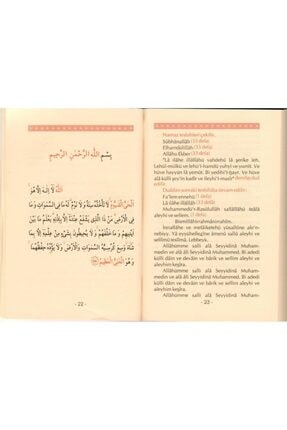 بِسْمِ اللّٰهِ الرَّحْمٰنِ الرَّحِيمِ
اَللّٰهُ لَا اِلٰهَ اِلَّا هُوَ
الْحَيُّ الْقَيُّومُ لَا تَأْخُذُهُ سِنَةٌ وَلَا نَوْمٌ لَهُ مَا فِي السَّمٰوَاتِ وَ مَا
فِي الْاَرْضِ مَنْ ذَا الَّذِي يَشْفَعُ عِنْدَهُ اِلَّا بِاِذْنِهِ يَعْلَمُ مَا بَيْنَ
اَيْدِيهِمْ وَ مَا خَلْفَهُمْ وَ لَا يُحِيطُونَ بِشَيْءٍ مِنْ عِلْمِهِ اِلَّا بِمَا
شَاءَ وَسِعَ كُرْسِيُّهُ السَّمٰوَاتِ وَالْاَرْضَ وَ لَا يَؤُدُهُ حِفْظُهُمَا
وَ هُوَ الْعَلِيُّ الْعَظِيمُ
- 22 -
Namaz tesbihleri çekilir.
Sübhânallâh (33 defa)
Elhamdülillâh (33 defa)
Allâhu Ekber (33 defa)
"Lâ ilâhe illallâhü vahdehü lâ şerike leh.
Lehül-mülkü ve lehü'l-hamdü yuhyî ve yümît. Ve
hüve hayyün lâ yemût. Bi yedihi'l-hayr. Ve hüve
alâ külli şey'in kadîr ve ileyhi'l-masîr" denilip duâ
edilir.
Duâdan sonraki tesbihâta devam edilir:
Fa'lem ennehû (1 defa)
Lâ ilâhe illallâh (33 defa)
Muhammedü'r-Rasûlullah sallallâhü teâlâ
aleyhi ve sellem. (1 defa)
Bismillâhirrahmânirrahîm.
İnnallâhe ve melâiketehû yüsallûne ale'n-
nebiyy. Yâ eyyühellezîne âmenû sallû aleyhi ve
sellimû teslîmâ. Lebbeyk.
Allâhümme salli alâ Seyyidinâ Muham-
medin ve alâ âli Seyyidinâ Muhammed. Bi adedi
külli dâin ve devâin ve bârik ve sellim aleyhi ve
aleyhim kesîra.
Allâhümme salli alâ Seyyidinâ Muham-
medin ve alâ âli Seyyidinâ Muhammed. Bi adedi
külli dâin ve devâin ve bârik ve sellim aleyhi ve
aleyhim kesîra.
Allâhümme salli alâ Seyyidinâ Muham-
- 23 -